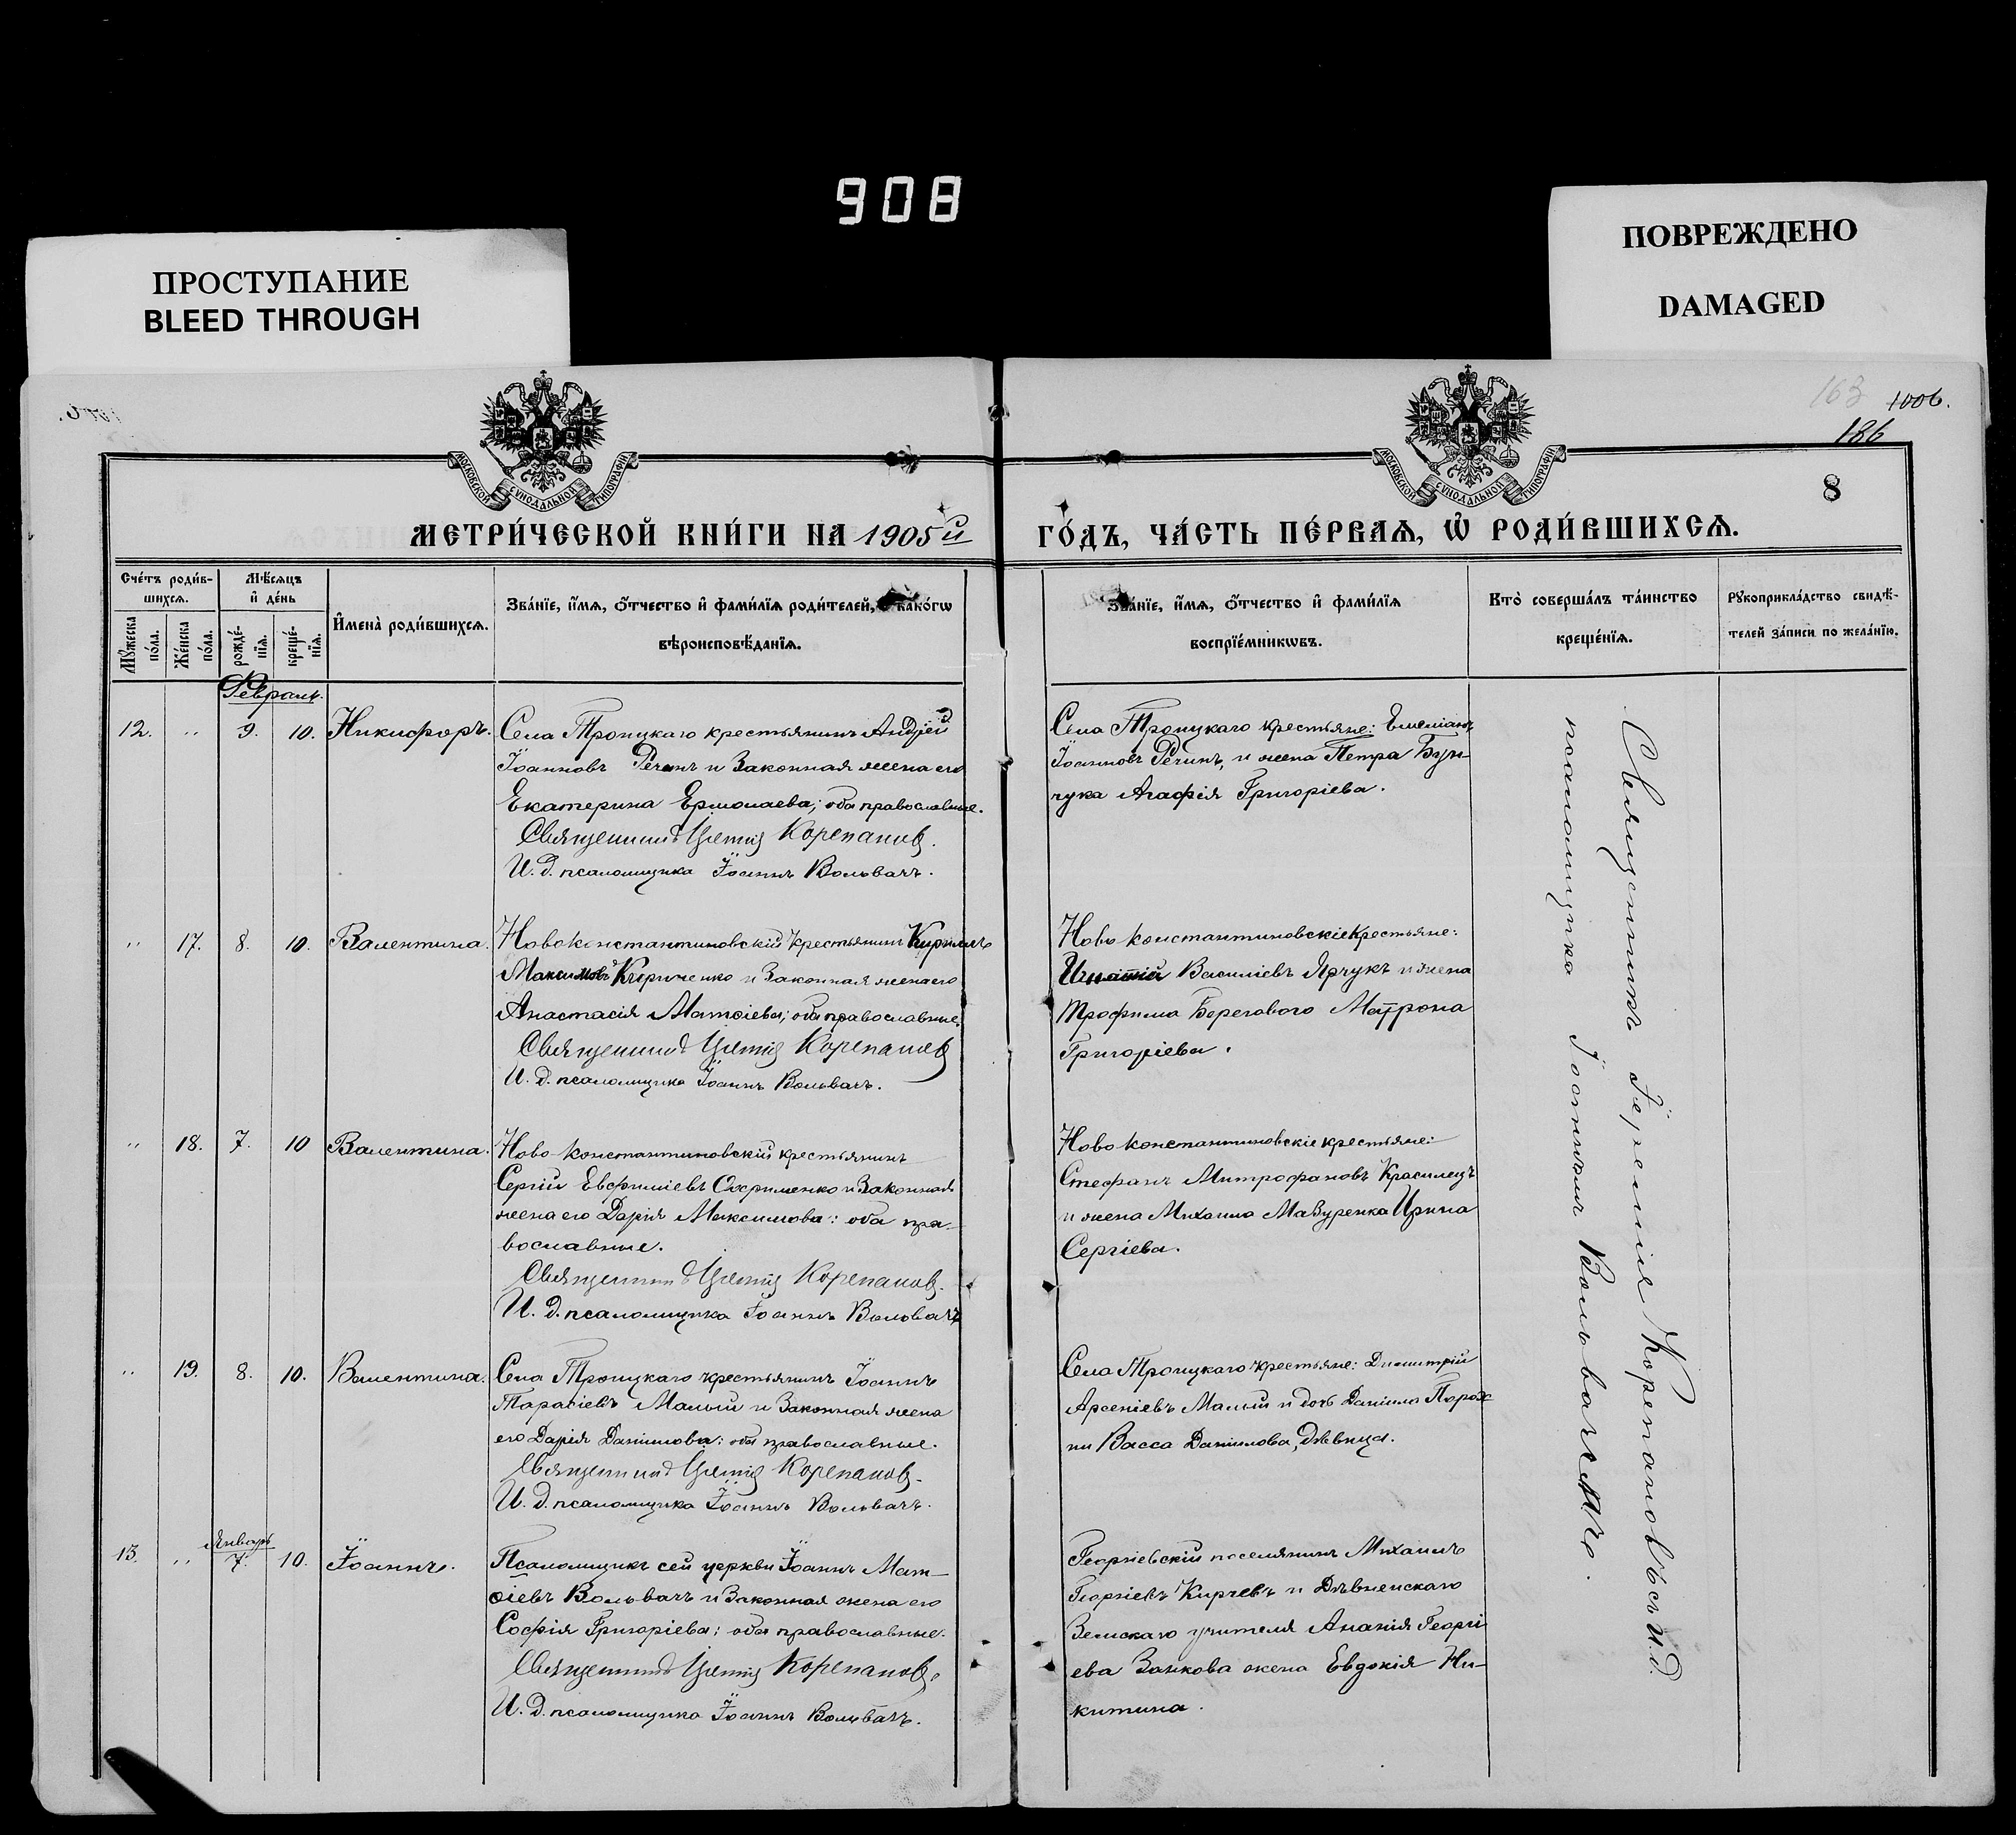 908
ПРОСТУПАНИЕ
BLEED THROUGH
ПОВРЕЖДЕНО
DAMAGED
163 1006.
186
8
МОСКОВСКОЙ СѴНОДАЛЬНОЙ ТИПОГРАФІИ
МОСКОВСКОЙ СѴНОДАЛЬНОЙ ТИПОГРАФІИ
МЕТРИ́ЧЕСКОЙ КНИ́ГИ НА 1905й
ГО́ДЪ, ЧА́СТЬ ПЕ́РВАѦ, Ѡ҆ РОДИ́ВШИХСѦ.
Сче́тъ роди́в-
шихсѧ.
Мꙋ́жеска по́ла.
Же́нска по́ла.
Мѣ́сѧцъ
и҆ де́нь
рожде́-
нїѧ.
креще́-
нїѧ.
И҆мена̀ роди́вшихсѧ.
Зва́нїе, и҆́мѧ, ѻ҆́тчество и҆ фами́лїѧ роди́телей, како́гѡ
вѣроисповѣ́данїѧ.
Зва́нїе, и҆́мѧ, ѻ҆́тчество и҆ фами́лїѧ
воспрїе́мникѡвъ.
Кто̀ соверша́лъ та́инство
креще́нїѧ.
Рꙋкоприкла́дство свидѣ́-
телей за́писи по жела́нїю.
Февраль.
12. " 9. 10. Никифоръ.
Села Троицкаго крестьянинъ Андрей
Іоанновъ Речинъ и законная жена его
Екатерина Ермолаева; оба православные.
Священникъ Корепановъ.
И. д. псаломщика Іоаннъ Вольвачъ.
Села Троицкаго крестьяне: Емелианъ
Іоанновъ Речинъ, и жена Петра Бун-
чука Агафія Григоріева.
" 17. 8. 10. Валентина.
Новоконстантиновскій крестьянинъ Кириллъ
Максимовъ Кириченко и законная жена его
Анастасія Матѳіева; оба православные.
Священникъ Корепановъ
И. д. псаломщика Іоаннъ Вольвачъ.
Ново константиновскіе крестьяне:
Игнатій Василіевъ Ярчукъ и жена
Трофима Берегового Матрона
Григоріева.
" 18. 7. 10 Валентина.
Ново константиновскій крестьянинъ
Сергій Евфиміевъ Охрименко и законная
жена его Дарія Максимова: оба пра-
вославные.
Священникъ Корепановъ.
И. д. псаломщика Іоаннъ Вольвачъ
Ново константиновскіе крестьяне:
Стефанъ Митрофановъ Красилецъ
и жена Михаила Мазуренка Ирина
Сергіева.
" 19. 8. 10. Валентина.
Села Троицкаго крестьянинъ Іоаннъ
Тарасіевъ Малый и законная жена
его Дарія Даніилова: оба православные.
Священникъ Корепановъ.
И. д. псаломщика Іоаннъ Вольвачъ.
Села Троицкаго крестьяне: Димитрій
Арсеніевъ Малый и дочь Даніила Порох
ни Васса Даніилова, дѣвица.
Январь
13. " 7. 10. Іоаннъ.
Псаломщикъ сей церкви Іоаннъ Мат-
ѳіевъ Вольвачъ и законная жена его
Софія Григоріева; оба православные.
Священникъ Корепановъ.
И. д. псаломщика Іоаннъ Вольвачъ.
Георгіевскій поселянинъ Михаилъ
Георгіевъ Кирчевъ и Дѣвненскаго
Земскаго учителя Ананія Георгі
ева Занкова жена Евдокія Ни-
китина.
Священникъ Іереміи Корепановъ съ и. д.
псаломщика Іоанномъ Вольвачемъ.